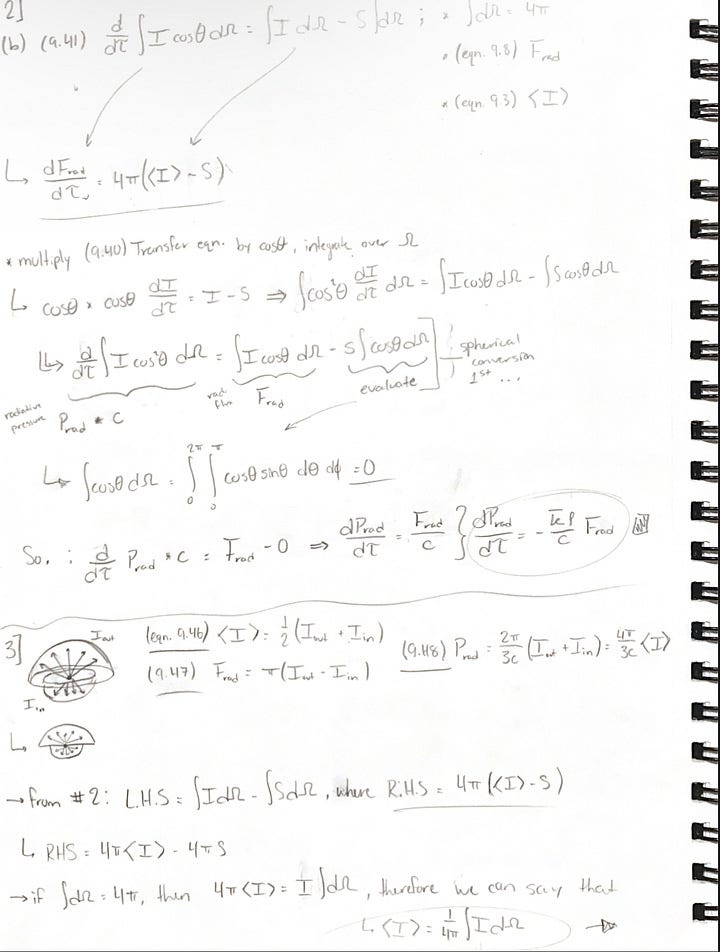 2]
(b) (9.41) d/dτ ∫ I cosθ dΩ = ∫ I dΩ - S∫dΩ ; * ∫dΩ = 4π
• (eqn. 9.8) F_rad
* (eqn. 9.3) ⟨I⟩
↳ dF_rad/dτ_v = 4π(⟨I⟩ - S)
* multiply (9.40) Transfer eqn. by cosθ, integrate over Ω
↳ cosθ * cosθ dI/dτ = I - S ⇒ ∫cos²θ dI/dτ dΩ = ∫I cosθ dΩ - ∫S cosθ dΩ
↳ d/dτ ∫ I cos²θ dΩ = ∫ I cosθ dΩ - S∫cosθ dΩ ] } spherical conversion 1st ...
radiative pressure P_rad * C rad flux F_rad evaluate
↳ ∫cosθ dΩ = ∫₀^2π ∫₀^π cosθ sinθ dθ dϕ = 0
So, : d/dτ P_rad * C = F_rad - 0 ⇒ dP_rad/dτ = F_rad/c } dP_rad/dτ = - k̄ρ/c F_rad
3] I_out (eqn. 9.46) ⟨I⟩ = 1/2 (I_out + I_in) (9.48) P_rad = 2π/3c (I_out + I_in) = 4π/3c ⟨I⟩
I_in (9.47) F_rad = π(I_out - I_in)
↳
→ from #2: L.H.S = ∫IdΩ - ∫SdΩ, where R.H.S = 4π(⟨I⟩ - S)
↳ RHS = 4π⟨I⟩ - 4πS
→ if ∫dΩ = 4π, then 4π⟨I⟩ = I∫dΩ, therefore we can say that
↳ ⟨I⟩ = 1/4π ∫IdΩ →